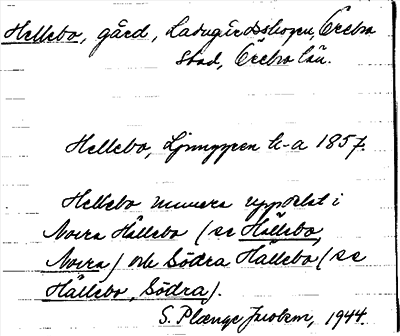 Hellebo, gård, Ladugårdsskogen, Örebro
stad, Örebro län.
Hellebo, Ljunggren h-a 1857.
Hellebo numera uppdelat i
Norra Hållebo (se Hållebo,
Norra) och Södra Hållebo (se
Hållebo, Södra).
S. Plænge Jacobson, 1944.